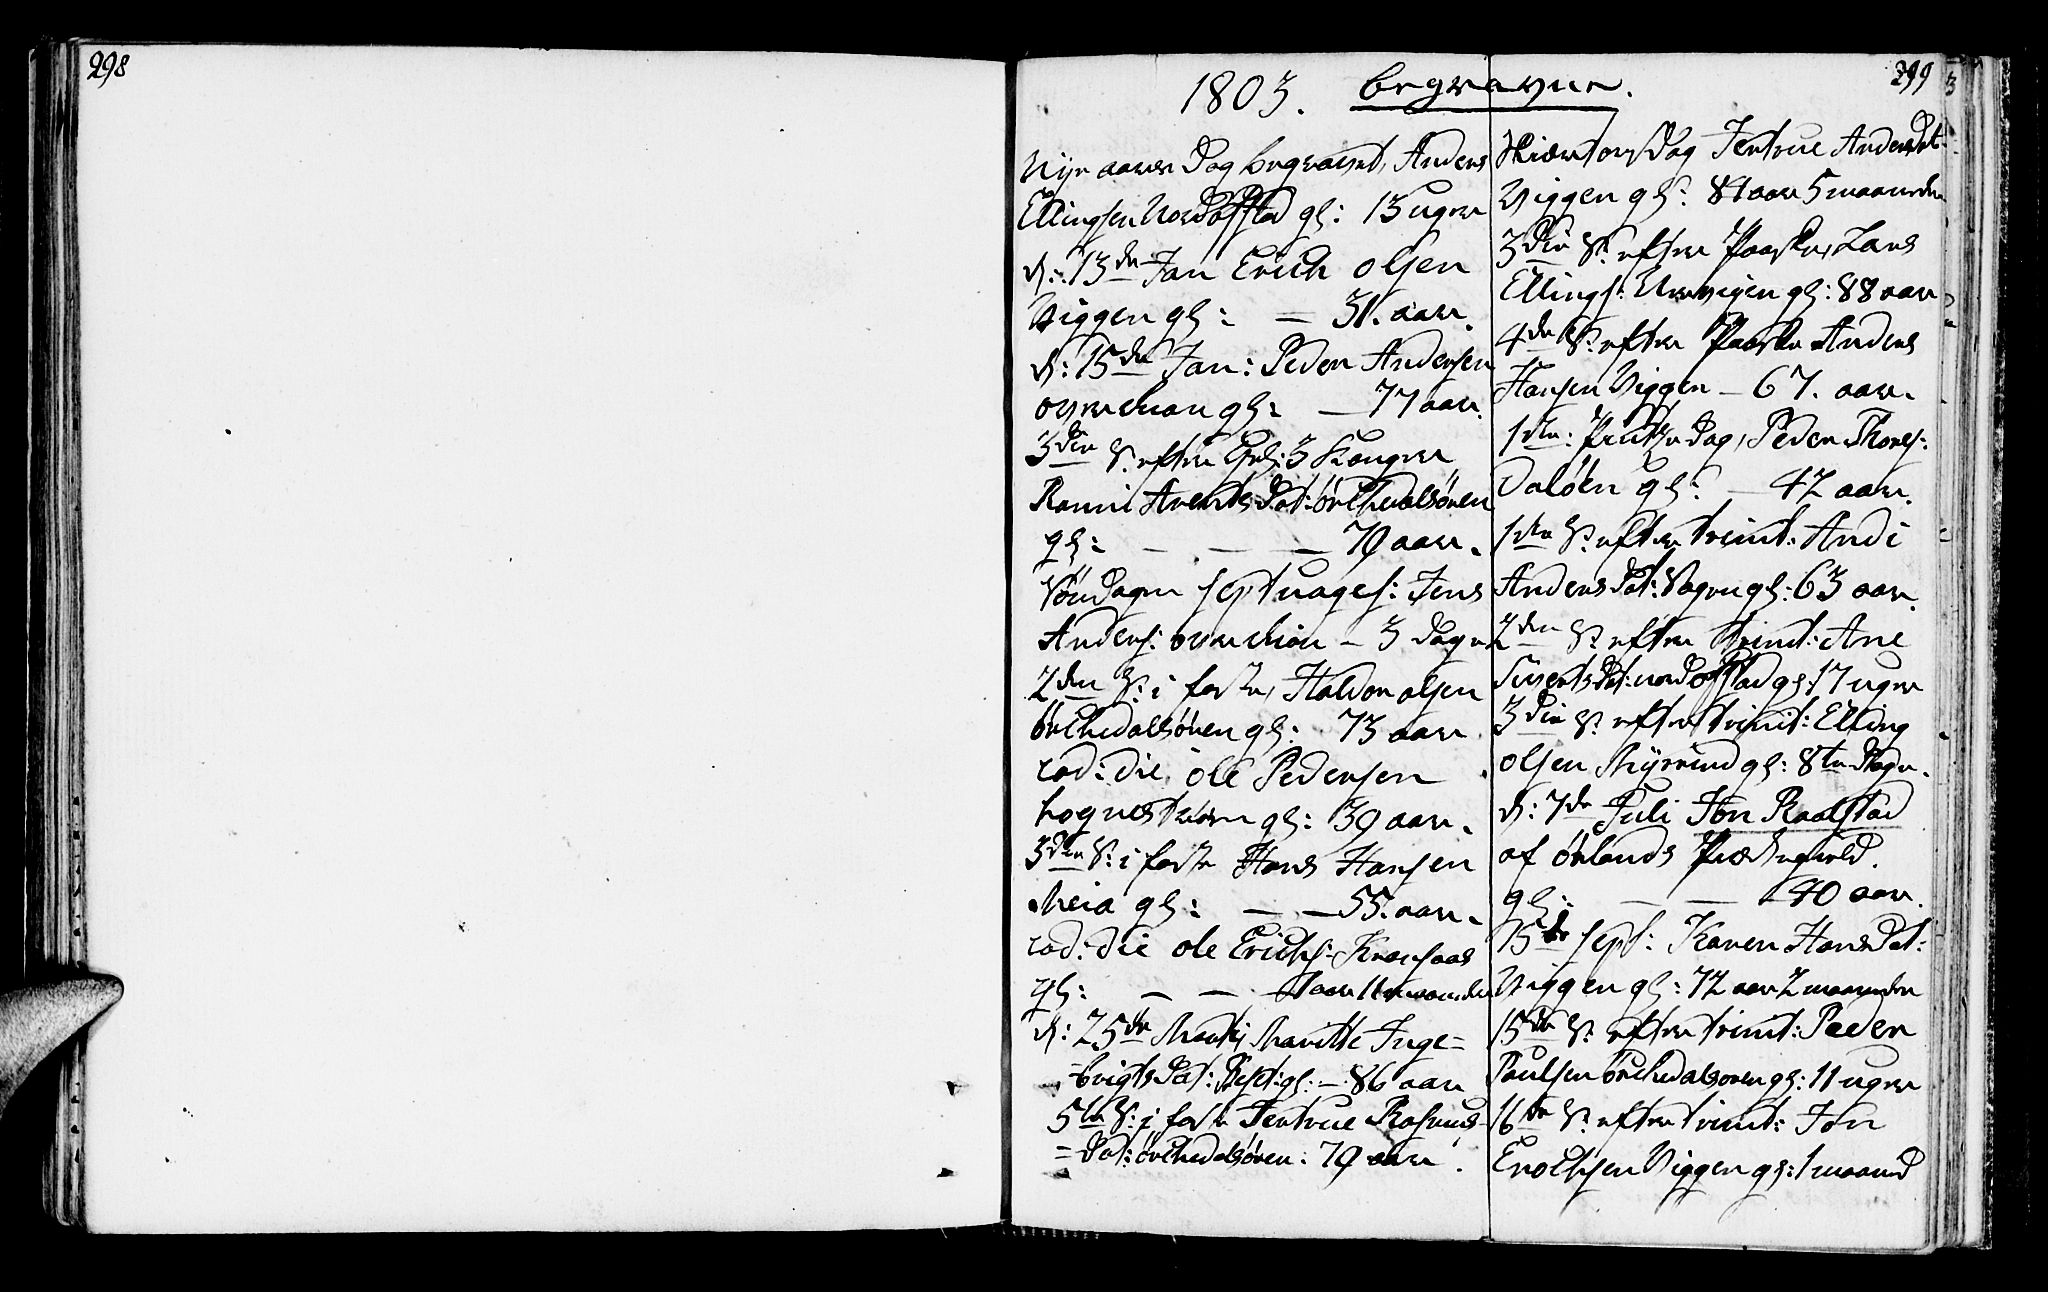 298
299
1803. begravne.
Nye aars Dag begravet, Anders
Ellingsen Nordofstad gl: 13 uger
d: 13de Jan Erich olsen
Viggen gl: — 31. aar.
d: 15de Jan: Peder Andersen
gl: — 77 aar.
3die S. efter Hel: 3 Konger
Ranni Arents Dat: örchedalsören
gl: — — — 79 aar.
Söndagen septuages: Jens
Anders: — 3 Dage
2den S: i faste, Haldor olsen
örchedalsören gl: 73 aar
eod: die ole Pedersen
gl: 39 aar.
3die S: i faste Hans Hansen
gl: — — 55. aar.
eod: die ole Erichs:
gl: — — 1 aar 11 maaneder
d: 25de Martj Maritte Inge=
=brigts Dat: gl: — 86 aar
5te S: i faste Jertrue Rasmus
=Dat: örchedalsören: 79 aar.
Skiertorsdag Jertrue Anders Dat
Viggen gl: 84 aar 5 maaneder
3die S: efter Paaske, Lars
Ellings: gl: 88 aar
4de S: efter Paaske Anders
Hansen Viggen — 67. aar.
1ste: Pintse Dag, Peder Thores:
Dalöen gl: — 42 aar.
1ste S: efter trinit: Andi
Anders Dat: gl: 63 aar.
2den S: efter trinit: Ane
Siverts Dat: nordofstad gl: 17 uger
3die S: efter trinit: Elling
olsen gl: 8te Dage.
d: 7de Juli Jon
af örlands Præstegield.
gl: — — 40 aar.
15de sept: Karen Hans Dat:
Viggen gl: 72 aar 2 maaneder
15de S: efter trinit: Peder
Paulsen örchedalsoren gl: 11 uger
16de S: efter trinit: Jon
Erichsen Viggen gl: 1 maaned